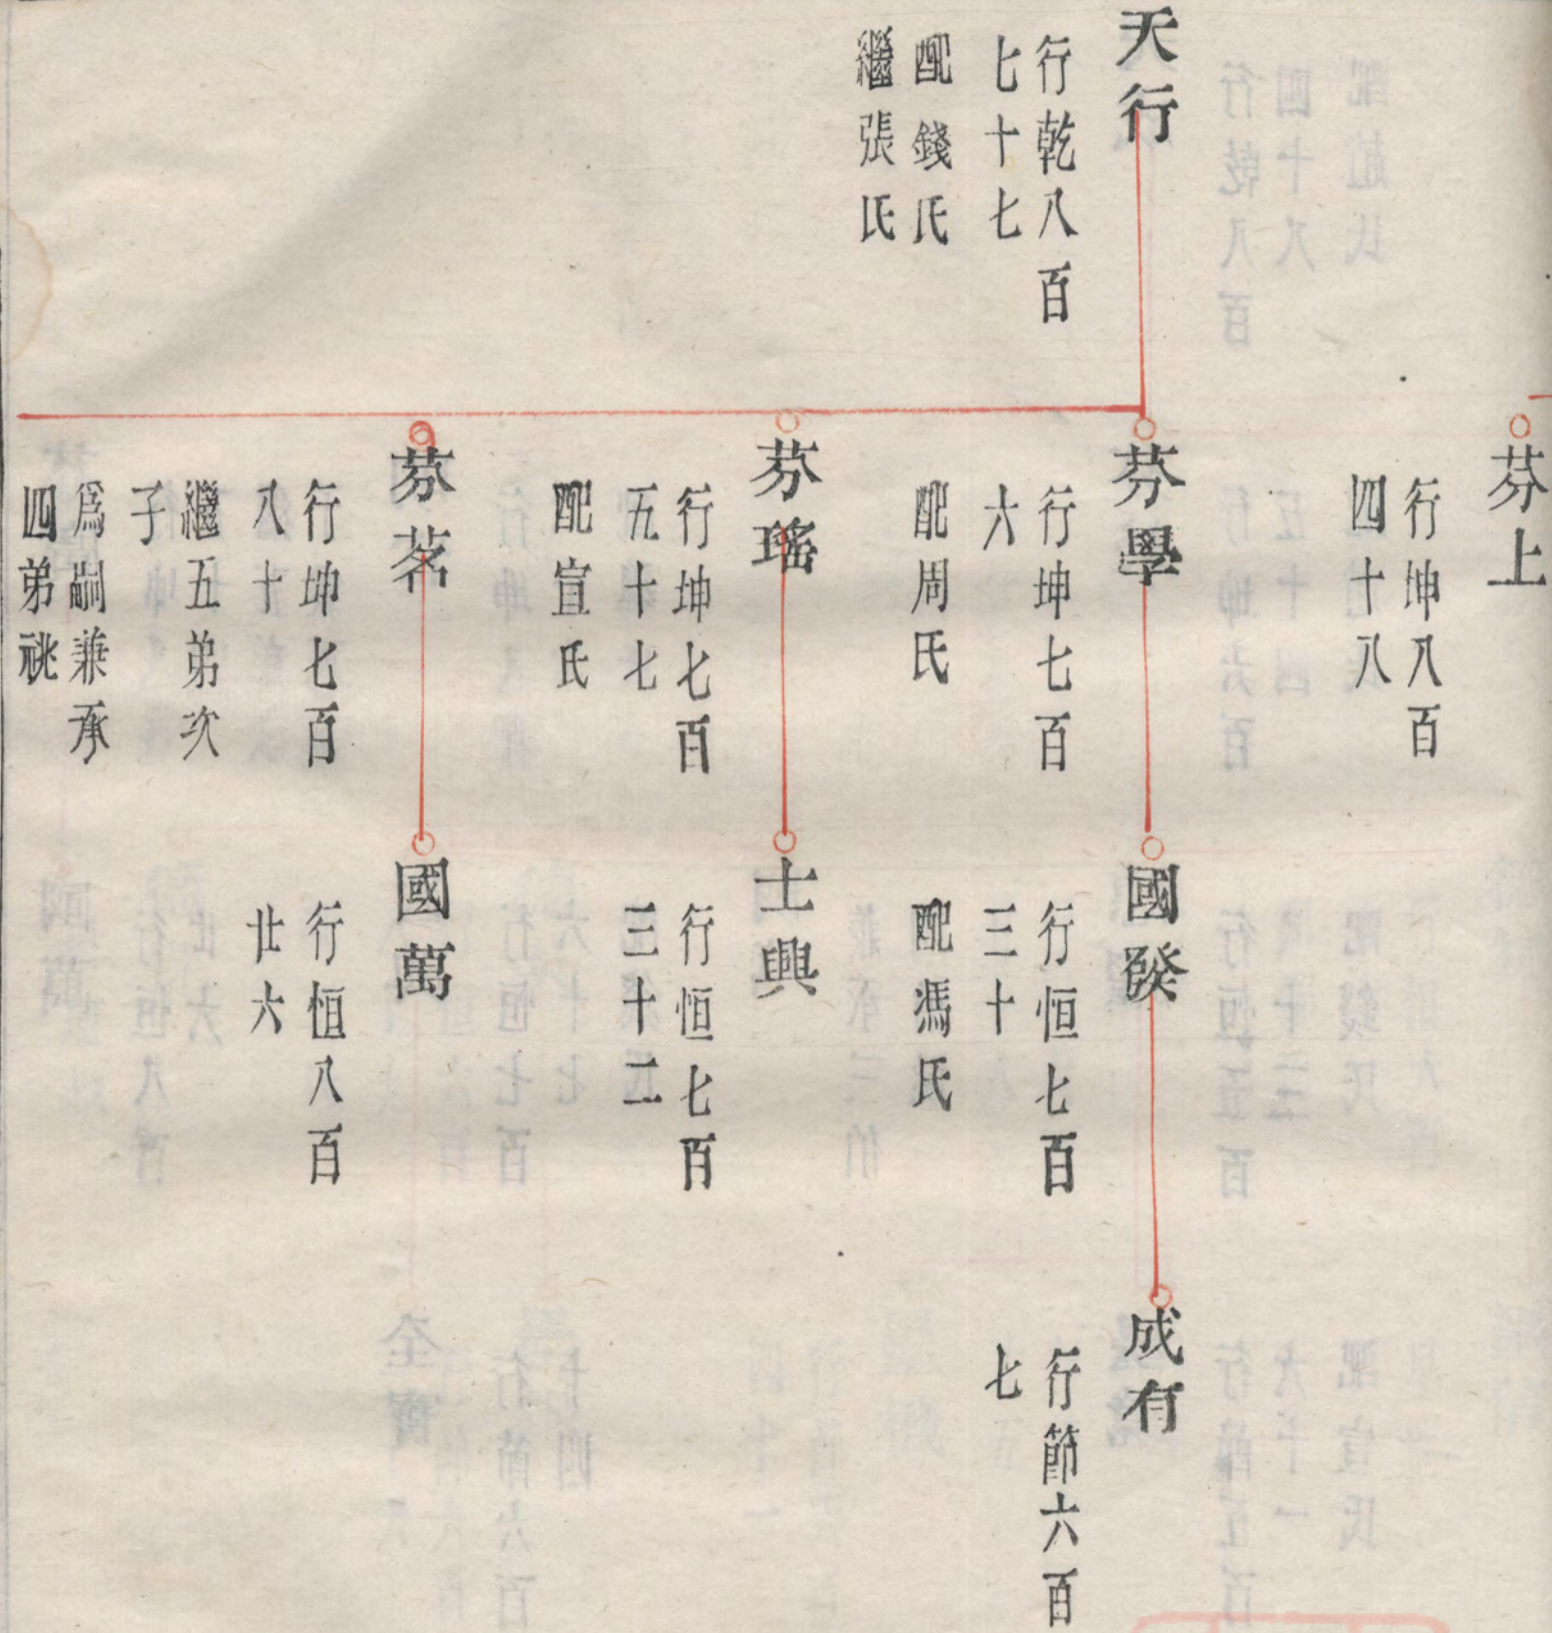 芬上
行坤八百
四十八
天行
行乾八百
七十七
配錢氏
繼張氏
芬學
行坤七百
六
配周氏
國睽
行恒七百
三十
配馮氏
成有
行節六百
七
芬瑤
行坤七百
五十七
配宣氏
士興
行恒七百
三十二
芬茗
行坤七百
八十
繼五弟次
子
爲嗣兼承
四弟祧
國萬
行恒八百
廿六